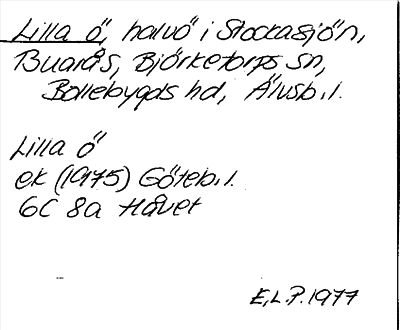 Lilla Ö, halvö i Stockasjön,
Buarås, Björketorps sn,
Bollebygds hd, Älvsb.l.
Lilla Ö
ek (1975) Göteb.l.
6C 8a Håvet
E.L.P. 1977